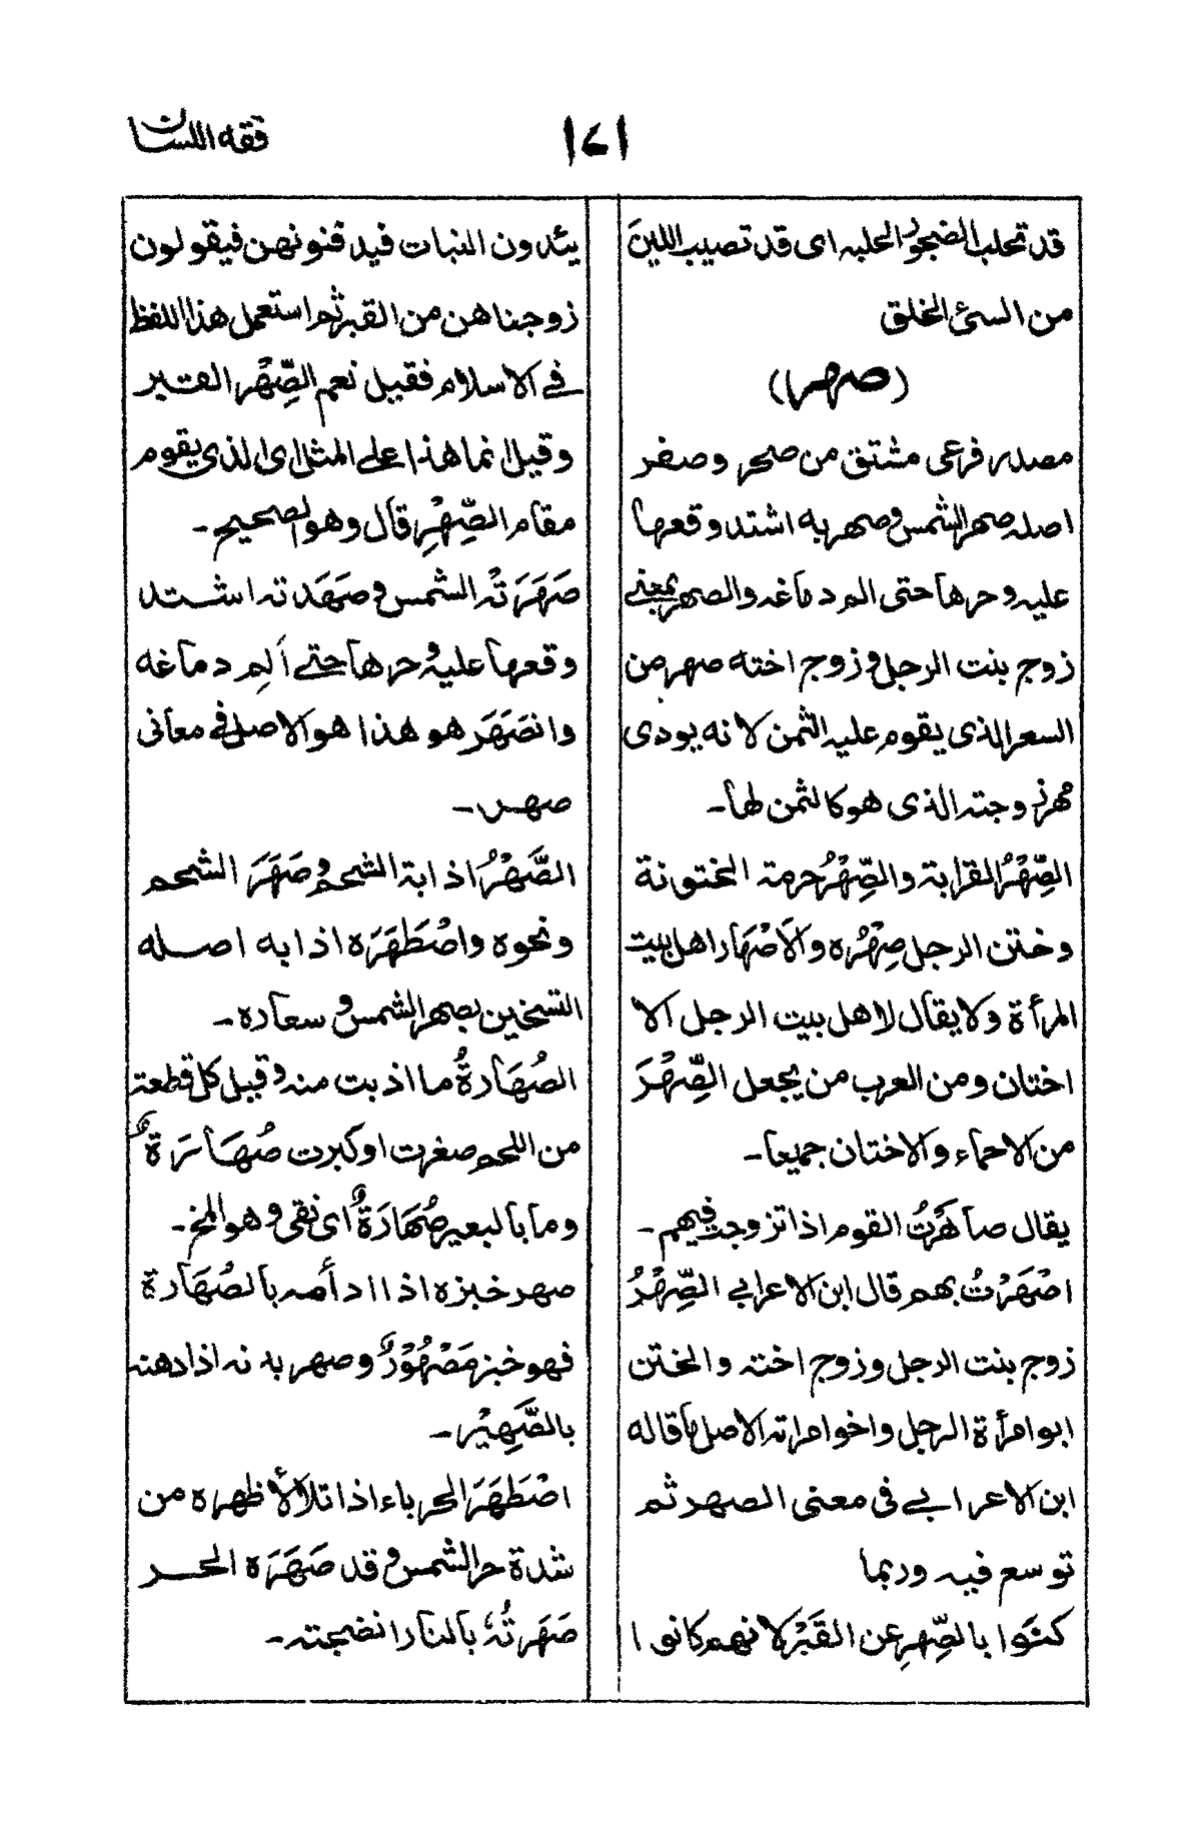 ١٤١
فقه اللسان
قد تحلب الضجور الحلبه اى قد تصيب اللين
من السئ الخلق
(صهر)
مصدر فرعى مشتق من صحر وصفر
اصله صهر الشمس وصهر به اشتد وقعها
عليه وحرها حتى الم دماغه والصهر بمعنے
زوج بنت الرجل وزوج اخته صهر من
السعر الذى يقوم عليه الثمن لانه يودى
مهر زوجته الذى هو كالثمن لها-
الصِّهْرُ القرابة والصِّهْرُ حرمة الختونة
وختن الرجل صِهْرُه والاَصْهَار اهل بيت
المرأة ولا يقال لاهل بيت الرجل الا
اختان ومن العرب من يجعل الصِّهْرَ
من الاحماء والاختان جميعا-
يقال صاهَرْتُ القوم اذا تزوجت فيهم-
اصْهَرْتُ بهم قال ابن الاعرابے الصِّهْرُ
زوج بنت الرجل وزوج اخته والختن
ابو امرأة الرجل واخو امراته الاصل ما قاله
ابن الاعرابے فى معنى الصهر ثم
توسع فيه وربما
كنَّوا بالصِّهرِ عن القَبْر لانهم كانوا
يئدون النبات فيدفنونهن فيقولون
زوجناهن من القبر ثم استعمل هذا اللفظ
فے الاسلام فقيل نعم الصِّهْر القبر
وقيل انما هذا علے المثل اى الذى يقوم
مقام الصِّهْرِ قال وهو الصحيح-
صَهَرَتْه الشمس وصَهَدته اشتد
وقعها عليه وحرها حتے اَلِم دماغه
وانصَهَر هو هذا هو الاصل فے معانى
صهر-
الصَّهْرُ اذابة الشحم وصَهَرَ الشحم
ونحوه واصْطَهَرَه اذابه اصله
التسخين بصهر الشمس وسعاره-
الصُهَارةُ ما اذبت منه وقيل كل قطعة
من اللحم صغرت او كبرت صُهَارَةٌ
وما بالبعير صُهَارَةٌ اى نقى وهو المخ-
صهر خبزه اذا ادأمه بالصُهَارة
فهو خبز مَصْهُوْرٌ وصهر بدنه اذا دهنه
بالصَّهِيْر-
اصْطَهَرَ الحرباء اذا تلألأ ظهره من
شدة حر الشمس وقد صَهَرَه الحر
صَهَرتُه بالنار انضجته-